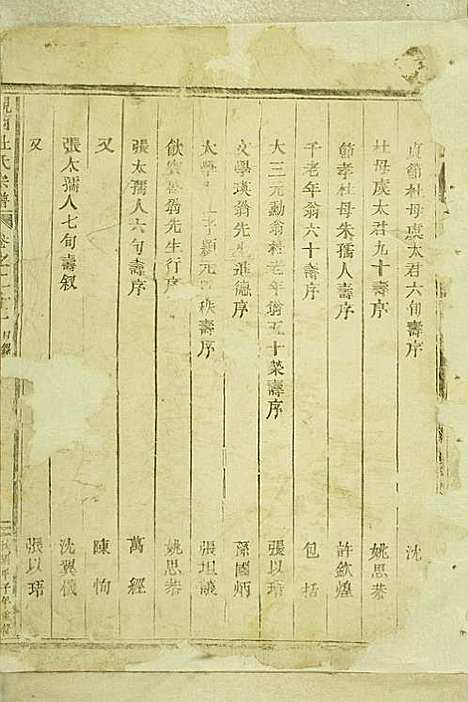 貞節杜母虞太君六旬壽序 沈
杜母虞太君九十壽序 姚思恭
節孝杜母朱孺人壽序 許欽煌
千老年翁六十壽序 包括
大三元勳翁杜老年翁五十榮壽序 張以琣
文學瑛翁先 進德序 孫國炳
太學 穎元 秩壽序 張坦議
飲賓 翁先生行序 姚思恭
張太孺人六旬壽序 萬經
又 陳恂
張太孺人七旬壽叙 沈翼儀
又 張以琣
杜氏宗譜 卷之 目錄